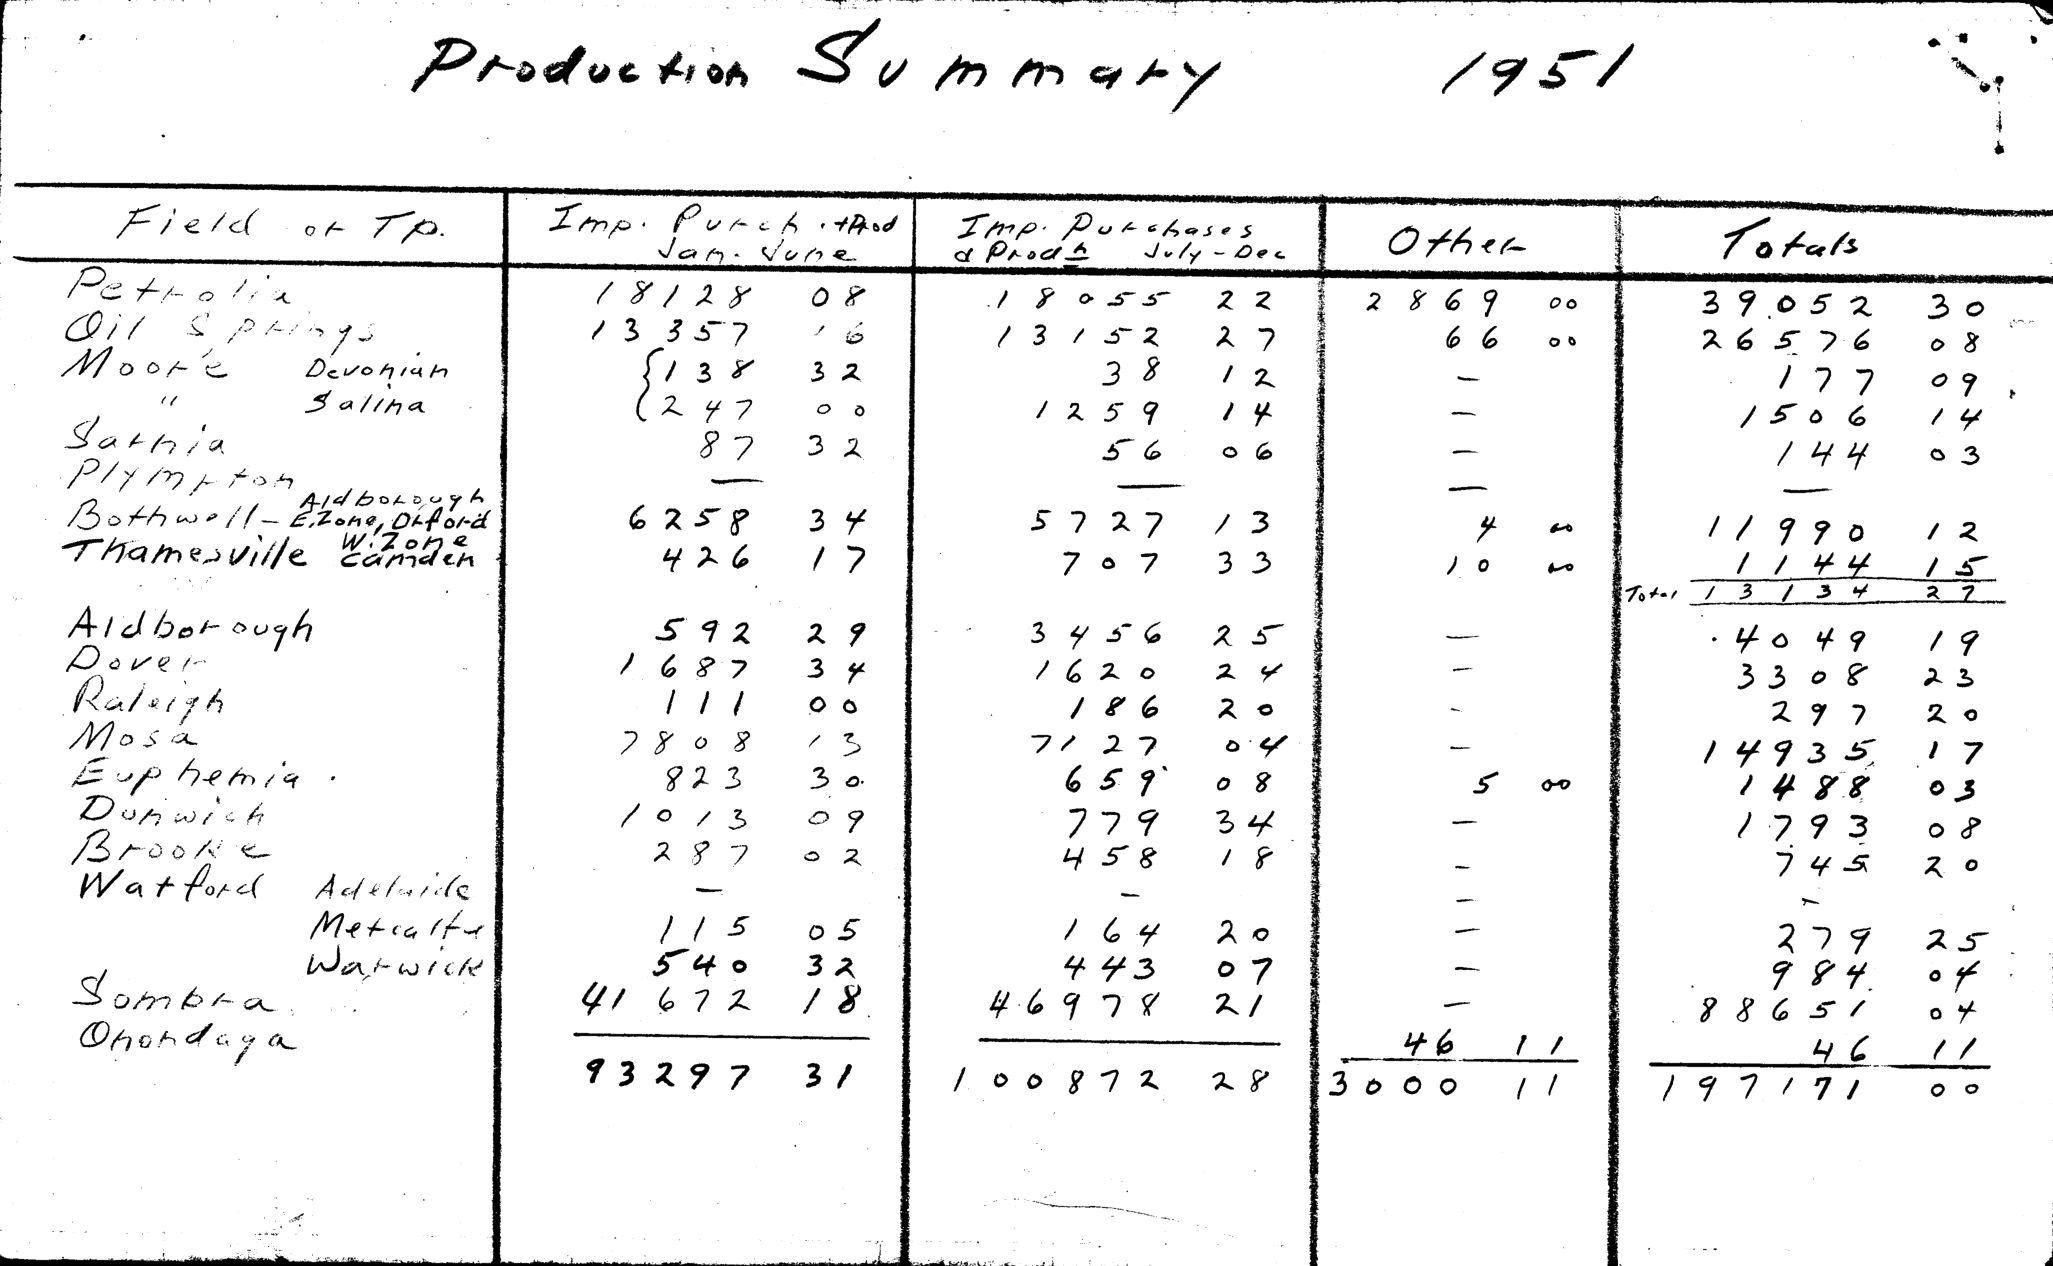 Production Summary 1951
Field or Tp. Imp. Purch. + Prod Jan. June Imp. Purchases & Prodn July - Dec Other Totals
Petrolia 18128 08 18055 22 2869 00 39052 30
Oil Springs 13357 16 13152 27 66 00 26576 08
Moore Devonian 138 32 38 12 — 177 09
" Salina 247 00 1259 14 — 1506 14
Sarnia 87 32 56 06 — 144 03
Plympton — — — —
Bothwell - Aldborough E.Zone, Orford 6258 34 5727 13 4 00 11990 12
Thamesville W. Zone Camden 426 17 707 33 10 00 1144 15
Total 13134 27
Aldborough 592 29 3456 25 — 4049 19
Dover 1687 34 1620 24 — 3308 23
Raleigh 111 00 186 20 - 297 20
Mosa 7808 13 7127 04 — 14935 17
Euphemia 823 30 659 08 5 00 1488 03
Dunwich 1013 09 779 34 — 1793 08
Brooke 287 02 458 18 - 745 20
Watford Adelaide — — — -
Metcalfe 115 05 164 20 — 279 25
Warwick 540 32 443 07 — 984 04
Sombra 41672 18 46978 21 — 88651 04
Onondaga 46 11 46 11
93297 31 100872 28 3000 11 197171 00